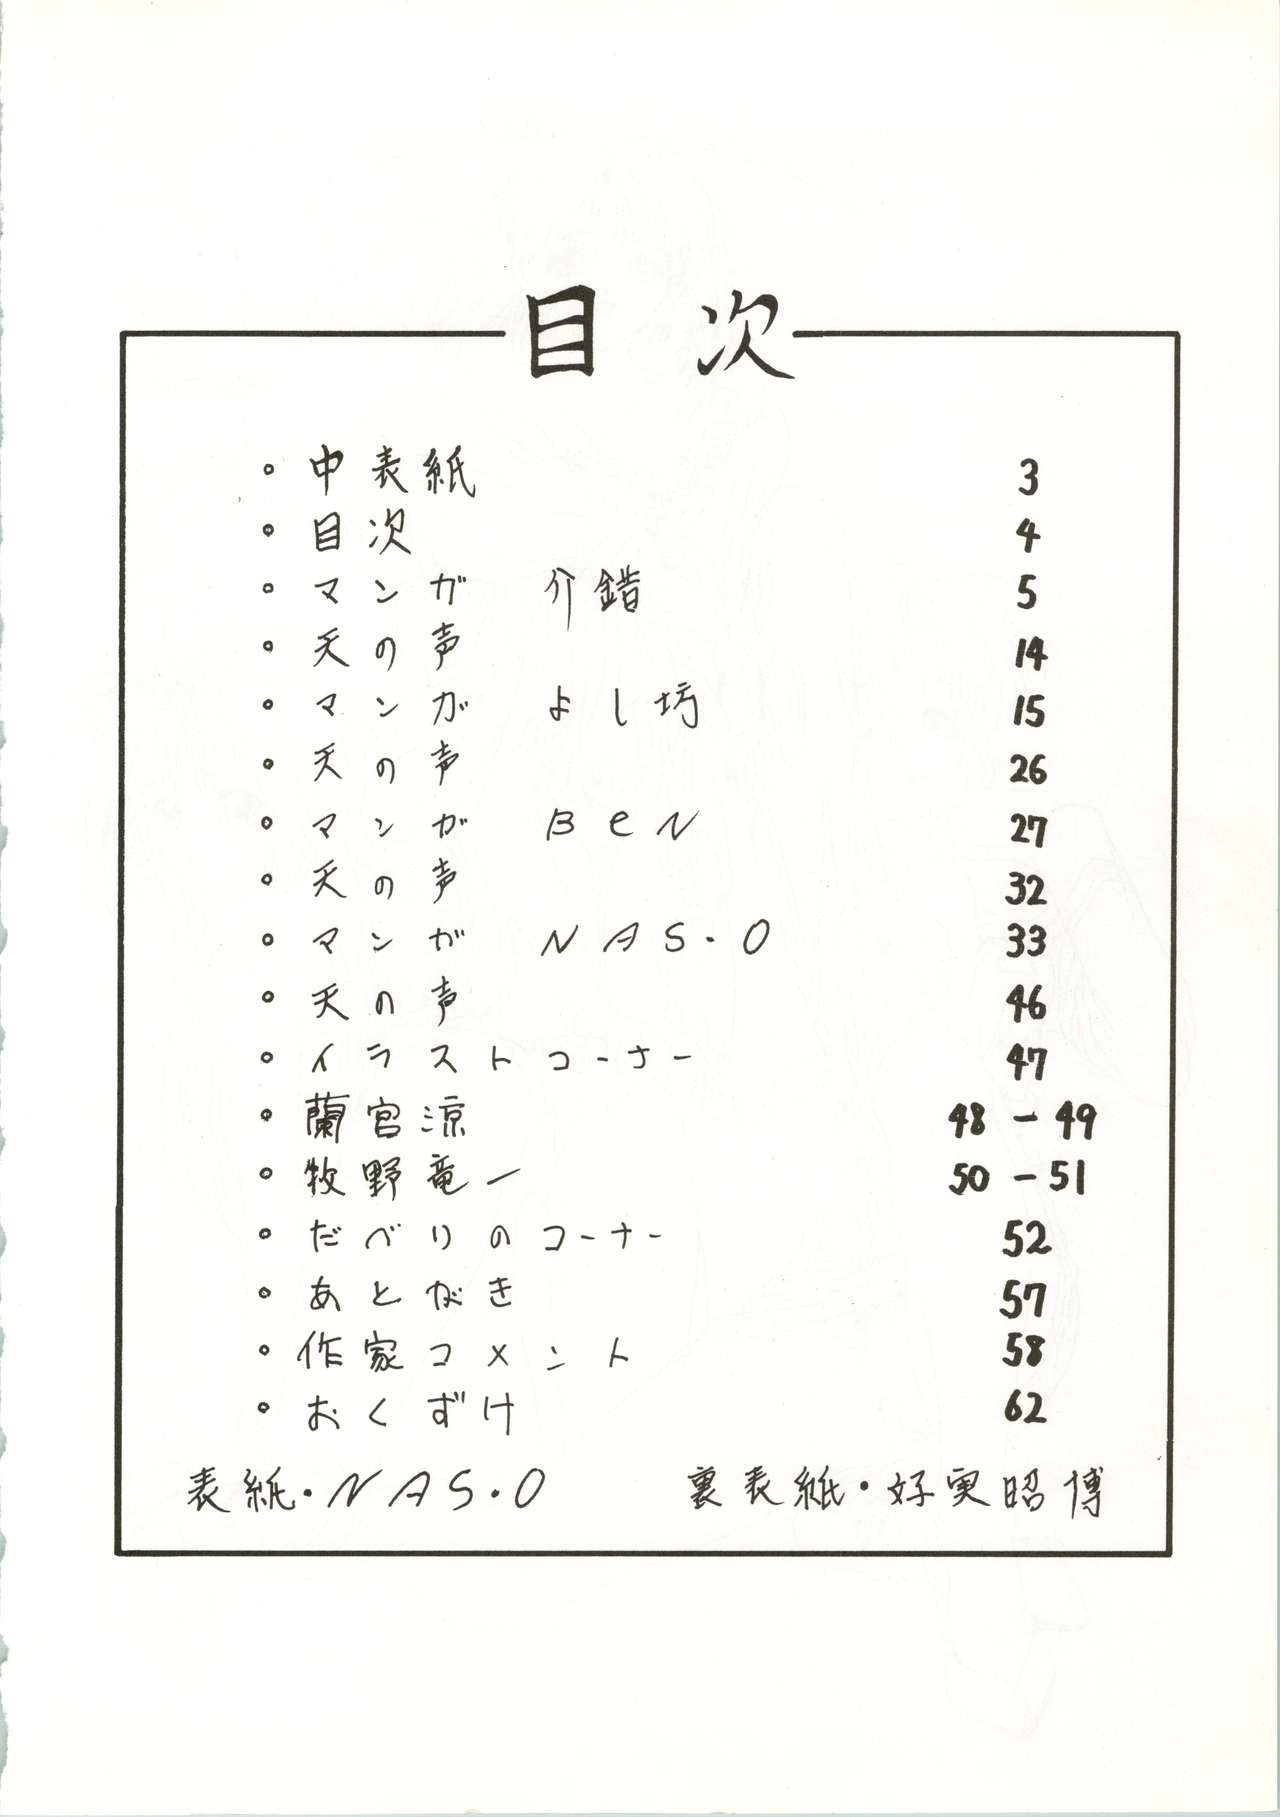 目次
・中表紙 3
・目次 4
・マンガ 介錯 5
・天の声 14
・マンガ よし坊 15
・天の声 26
・マンガ BeN 27
・天の声 32
・マンガ NAS・O 33
・天の声 46
・イラストコーナー 47
・蘭宮涼 48-49
・牧野竜一 50-51
・だべりのコーナー 52
・あとがき 57
・作家コメント 58
・おくずけ 62
表紙・NAS・O 裏表紙・好実昭博